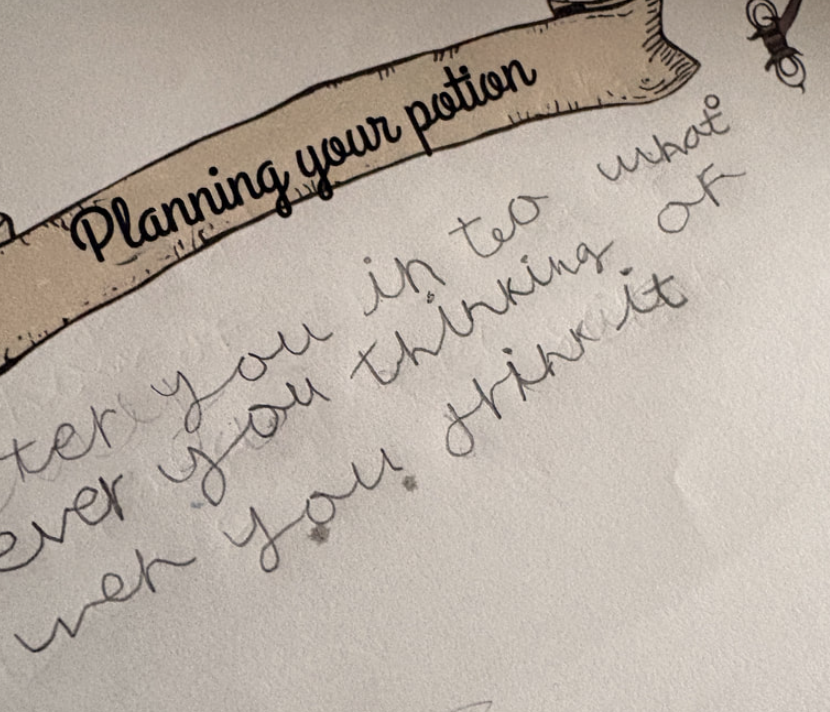 Planning your potion
ter you in too what
ever you thinking of
wen you drink it